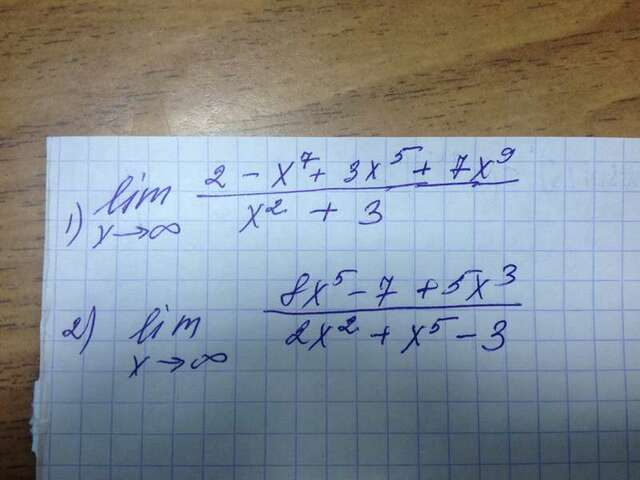 1) lim x→∞ (2 - x⁷ + 3x⁵ + 7x⁹) / (x² + 3)
2) lim x→∞ (8x⁵ - 7 + 5x³) / (2x² + x⁵ - 3)